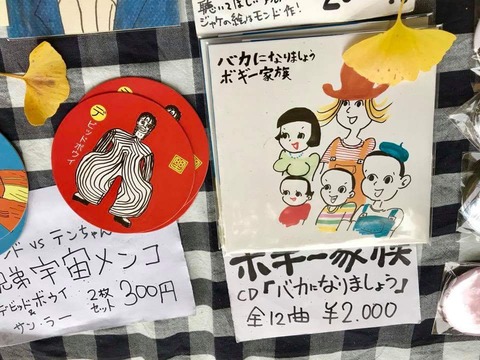 聴いてほしい
ジャケの絵はモンド作!
バカになりましょう
ボギー家族
デ
ビッドボウイ
ド vs テンちゃん
兄弟宇宙メンコ
デビッドボウイ
&
サン・ラー
2枚
セット
300円
ボギー家族
CD「バカになりましょう」
全12曲 ¥2.000